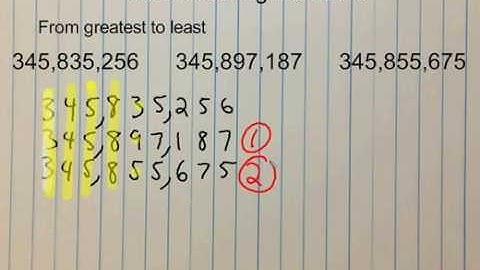 From greatest to least
345,835,256 345,897,187 345,855,675
345,835,256
345,897,187 1
345,855,675 2